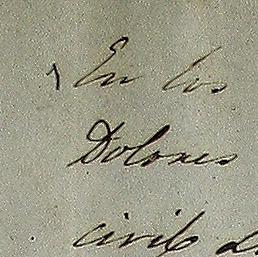 En los
Dolores
civil d